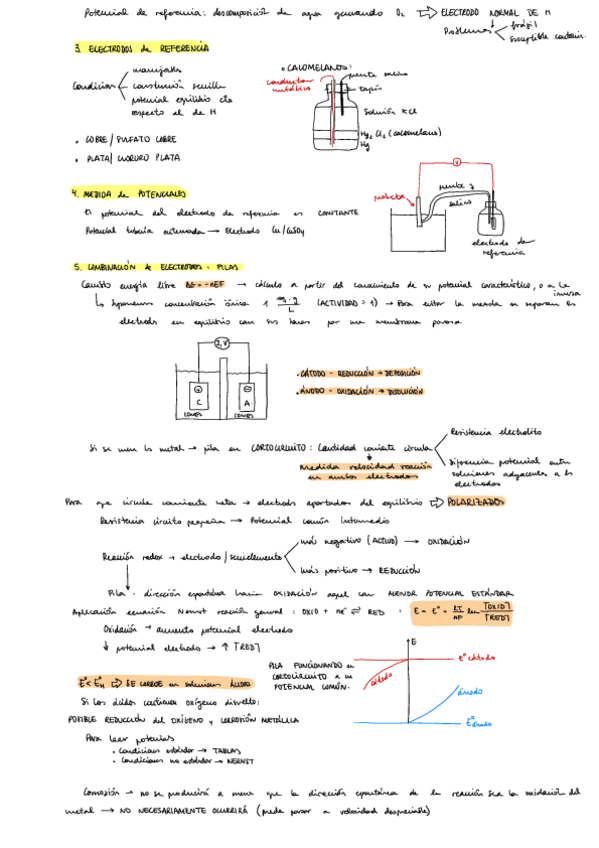 Potencial de referencia: descomposición de agua generando O₂ ⇒ ELECTRODO NORMAL DE H
Problemas
frágil
susceptible contamin.
3. ELECTRODOS de REFERENCIA
Condiciones
manejable
construcción sencilla
potencial equilibrio cte
respecto al de H
• COBRE / SULFATO COBRE
• PLATA / CLORURO PLATA
• CALOMELANOS:
conductor
metálico
puente salino
tapón
Solución KCl
Hg₂Cl₂ (calomelanos)
Hg
4. MEDIDA de POTENCIALES
El potencial del electrodo de referencia es CONSTANTE
Potencial tubería enterrada → Electrodo Cu/CuSO₄
V
probeta
puente
salino
electrodo de
referencia
5. COMBINACIÓN de ELECTRODOS - PILAS
Cambio energía libre ΔG = -nEF → cálculo a partir del conocimiento de su potencial característico, o a la
inversa
↳ Suponemos concentración iónica 1 L (ACTIVIDAD = 1) → Para evitar la mezcla se separan los
electrodos en equilibrio con sus iones por una membrana porosa.
I, V
C
A
IONES
IONES
• CÁTODO - REDUCCIÓN → DEPOSICIÓN
• ÁNODO - OXIDACIÓN → DISOLUCIÓN
Si se unen los metal → pila en CORTOCIRCUITO: Cantidad corriente circula
Resistencia electrolito
Diferencia potencial entre
soluciones adyacentes a los
electrodos
Medida velocidad reacción
en ambos electrodos
Para que circule corriente neta → electrodos apartados del equilibrio ⇒ POLARIZADOS
Resistencia circuito pequeña → Potencial común intermedio
Reacción redox → electrodo / semielemento
más negativo (ACTIVO) → OXIDACIÓN
más positivo → REDUCCIÓN
Pila - dirección espontánea hacia OXIDACIÓN aquel con MENOR POTENCIAL ESTÁNDAR
Aplicación ecuación Nernst reacción general : OXID + ne⁻ ⇌ RED : E = E° + RT/nF ln [OXID]/[RED]
Oxidación → aumenta potencial electrodo
↓ potencial electrodo → ↑ [RED]
E° < E°H ⇒ SE CORROE en soluciones ÁCIDAS
Si los ácidos contienen oxígeno disuelto:
POSIBLE REDUCCIÓN del OXÍGENO y CORROSIÓN METÁLICA
PILA FUNCIONANDO en
CORTOCIRCUITO a un
POTENCIAL COMÚN.
E
E° cátodo
cátodo
ánodo
E° ánodo
Para leer potencias
• Condiciones estándar → TABLAS
• Condiciones no estándar → NERNST
Corrosión → no se producirá a menos que la dirección espontánea de la reacción sea la oxidación del
metal → NO NECESARIAMENTE OCURRIRÁ (puede pasar a velocidad despreciable)